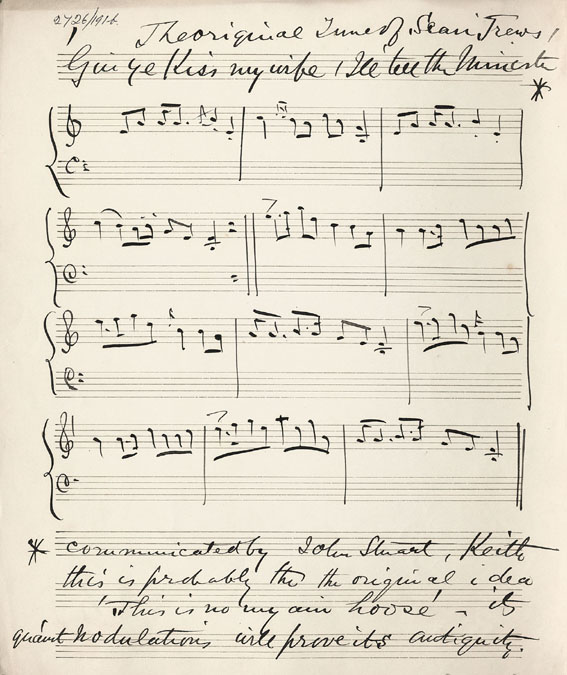 2726/1914
The original Tune of Sean Trews!
Gin ye Kiss my wife, I'll tell the Minister
*
* communicated by John Stuart, Keith
this is probably the the original idea
'This is no my ain hoose' - its
quaint modulations will prove its antiquity.